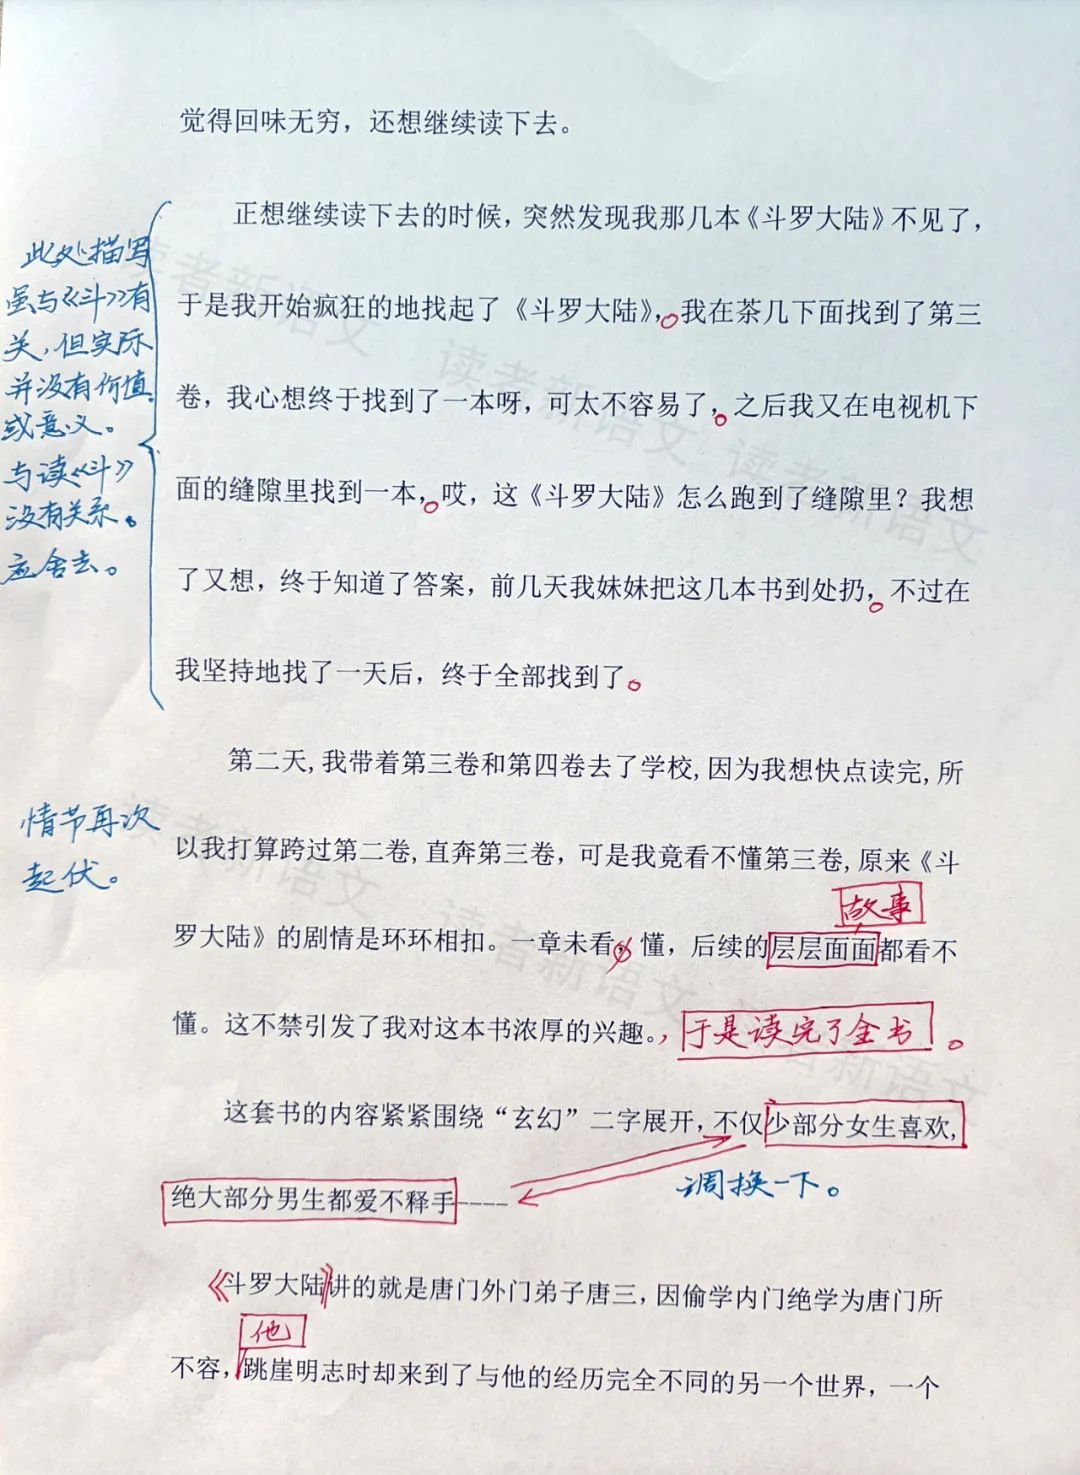 觉得回味无穷，还想继续读下去。
正想继续读下去的时候，突然发现我那几本《斗罗大陆》不见了，
于是我开始疯狂的地找起了《斗罗大陆》，。我在茶几下面找到了第三
卷，我心想终于找到了一本呀，可太不容易了，。之后我又在电视机下
面的缝隙里找到一本，。哎，这《斗罗大陆》怎么跑到了缝隙里？我想
了又想，终于知道了答案，前几天我妹妹把这几本书到处扔，。不过在
我坚持地找了一天后，终于全部找到了。
此处描写
虽与《斗》有
关，但实际
并没有价值
或意义。
与读《斗》
没有关系。
应舍去。
第二天，我带着第三卷和第四卷去了学校，因为我想快点读完，所
以我打算跨过第二卷，直奔第三卷，可是我竟看不懂第三卷，原来《斗
故事
罗大陆》的剧情是环环相扣。一章未看，懂，后续的层层面面都看不
懂。这不禁引发了我对这本书浓厚的兴趣。，于是读完了全书。
情节再次
起伏。
这套书的内容紧紧围绕“玄幻”二字展开，不仅少部分女生喜欢，
调换一下。
绝大部分男生都爱不释手----
《斗罗大陆》讲的就是唐门外门弟子唐三，因偷学内门绝学为唐门所
他
不容，跳崖明志时却来到了与他的经历完全不同的另一个世界，一个
读者新语文
读者新语文
读者新语文
读者新语文
读者新语文
读者新语文